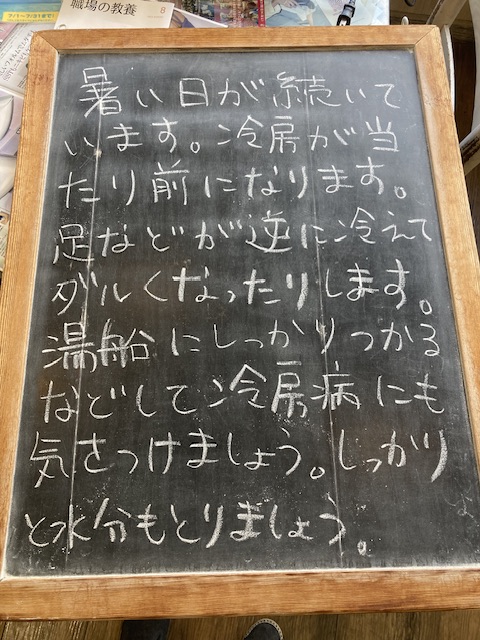 職場の教養 8
暑い日が続いて
います。冷房が当
たり前になります。
足などが逆に冷えて
ダルくなったりします。
湯船にしっかりつかる
などして冷房病にも
気をつけましょう。しっかり
と水分もとりましょう。